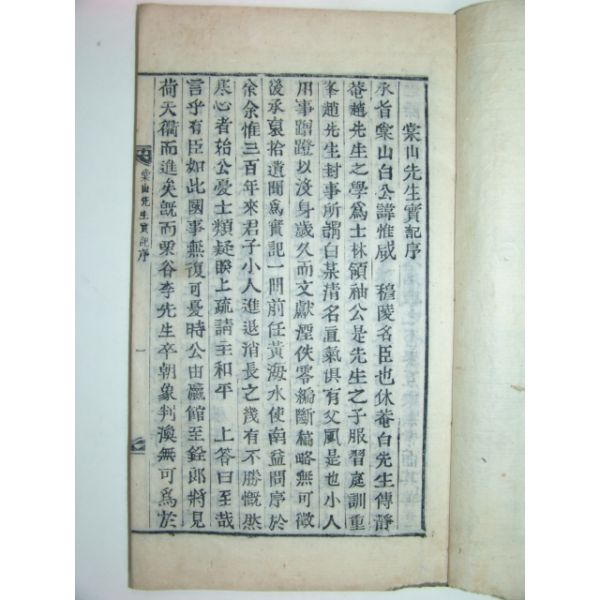 棠山先生實記序
承旨棠山白公諱惟咸　穆陵名臣也休菴白先生傳靜
菴趙先生之學爲士林領袖公是先生之子服習庭訓重
峯趙先生封事所謂白某清名直氣俱有父風是也小人
用事蹭蹬以沒身歲久而文獻湮佚零編斷稿略無可徵
後承裒拾遺聞爲實記一冊前任黃海水使南益問序於
余余惟三百年來君子小人進退消長之幾有不勝慨然
寒心者始公憂士類疑睽上疏請主和平　上答曰至哉
言乎有臣如此國事無復可憂時公由瀛館至銓郎將見
荷天衢而進矣旣而栗谷李先生卒朝象判渙無可爲於
棠山先生實記序
一